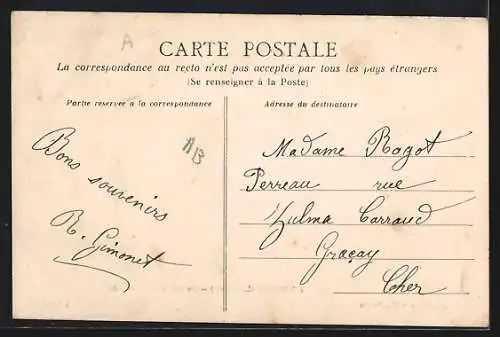 A
CARTE POSTALE
La correspondance au recto n'est pas acceptée par tous les pays étrangers
(Se renseigner à la Poste)
Partie réservée à la correspondance
Adresse du destinataire
AB
Bons souvenirs
R. Gimonet
Madame Ragot
Perreau rue
Zulma Carraud
Graçay
Cher